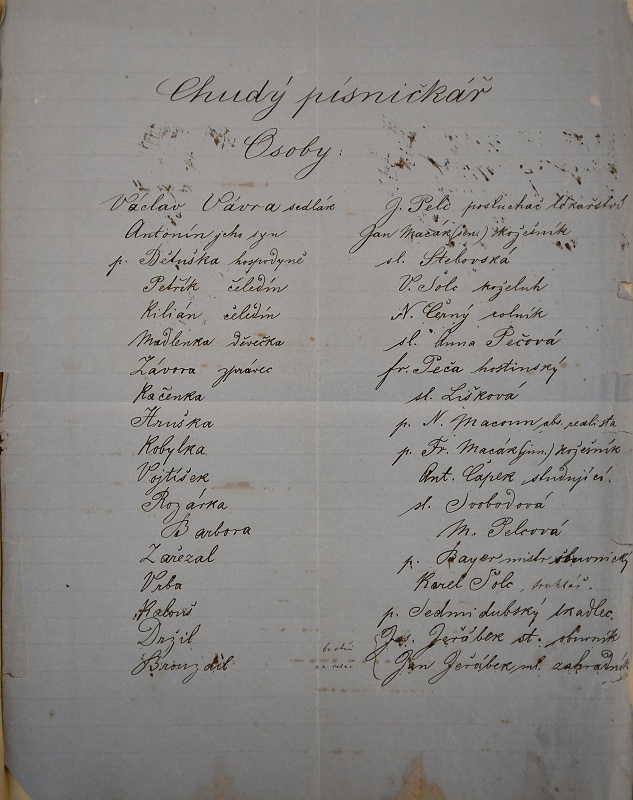 Chudý písničkář
Osoby:
Václav Vávra sedlák J. Pelc posluchač lékařství
Antonín jeho syn Jan Macák (sen.) kožešník
p. Bětuška hospodyně sl. Stebovská
Petřík čeledín V. Šolc koželuh
Kilián čeledín N. Černý rolník
Madlenka děvečka sl. Anna Pečová
Závora zprávce fr. Peča hostinský
Kačenka sl. Lišková
Hruška p. N. Macoun, abs. realista
Kobylka p. Fr. Macák (jun.) kožešník
Vojtíšek Ant. Čapek studující.
Rozárka sl. Svobodová
Barbora M. Pelcová
Zařezal p. Bayer mistr
Vrba Karel Šolc, truhlář.
Kalouš p. Sedmidubský tkadlec
Držil Jos. Jeřábek st. obuvník
Brouzdil Jan Jeřábek ml. zahradník